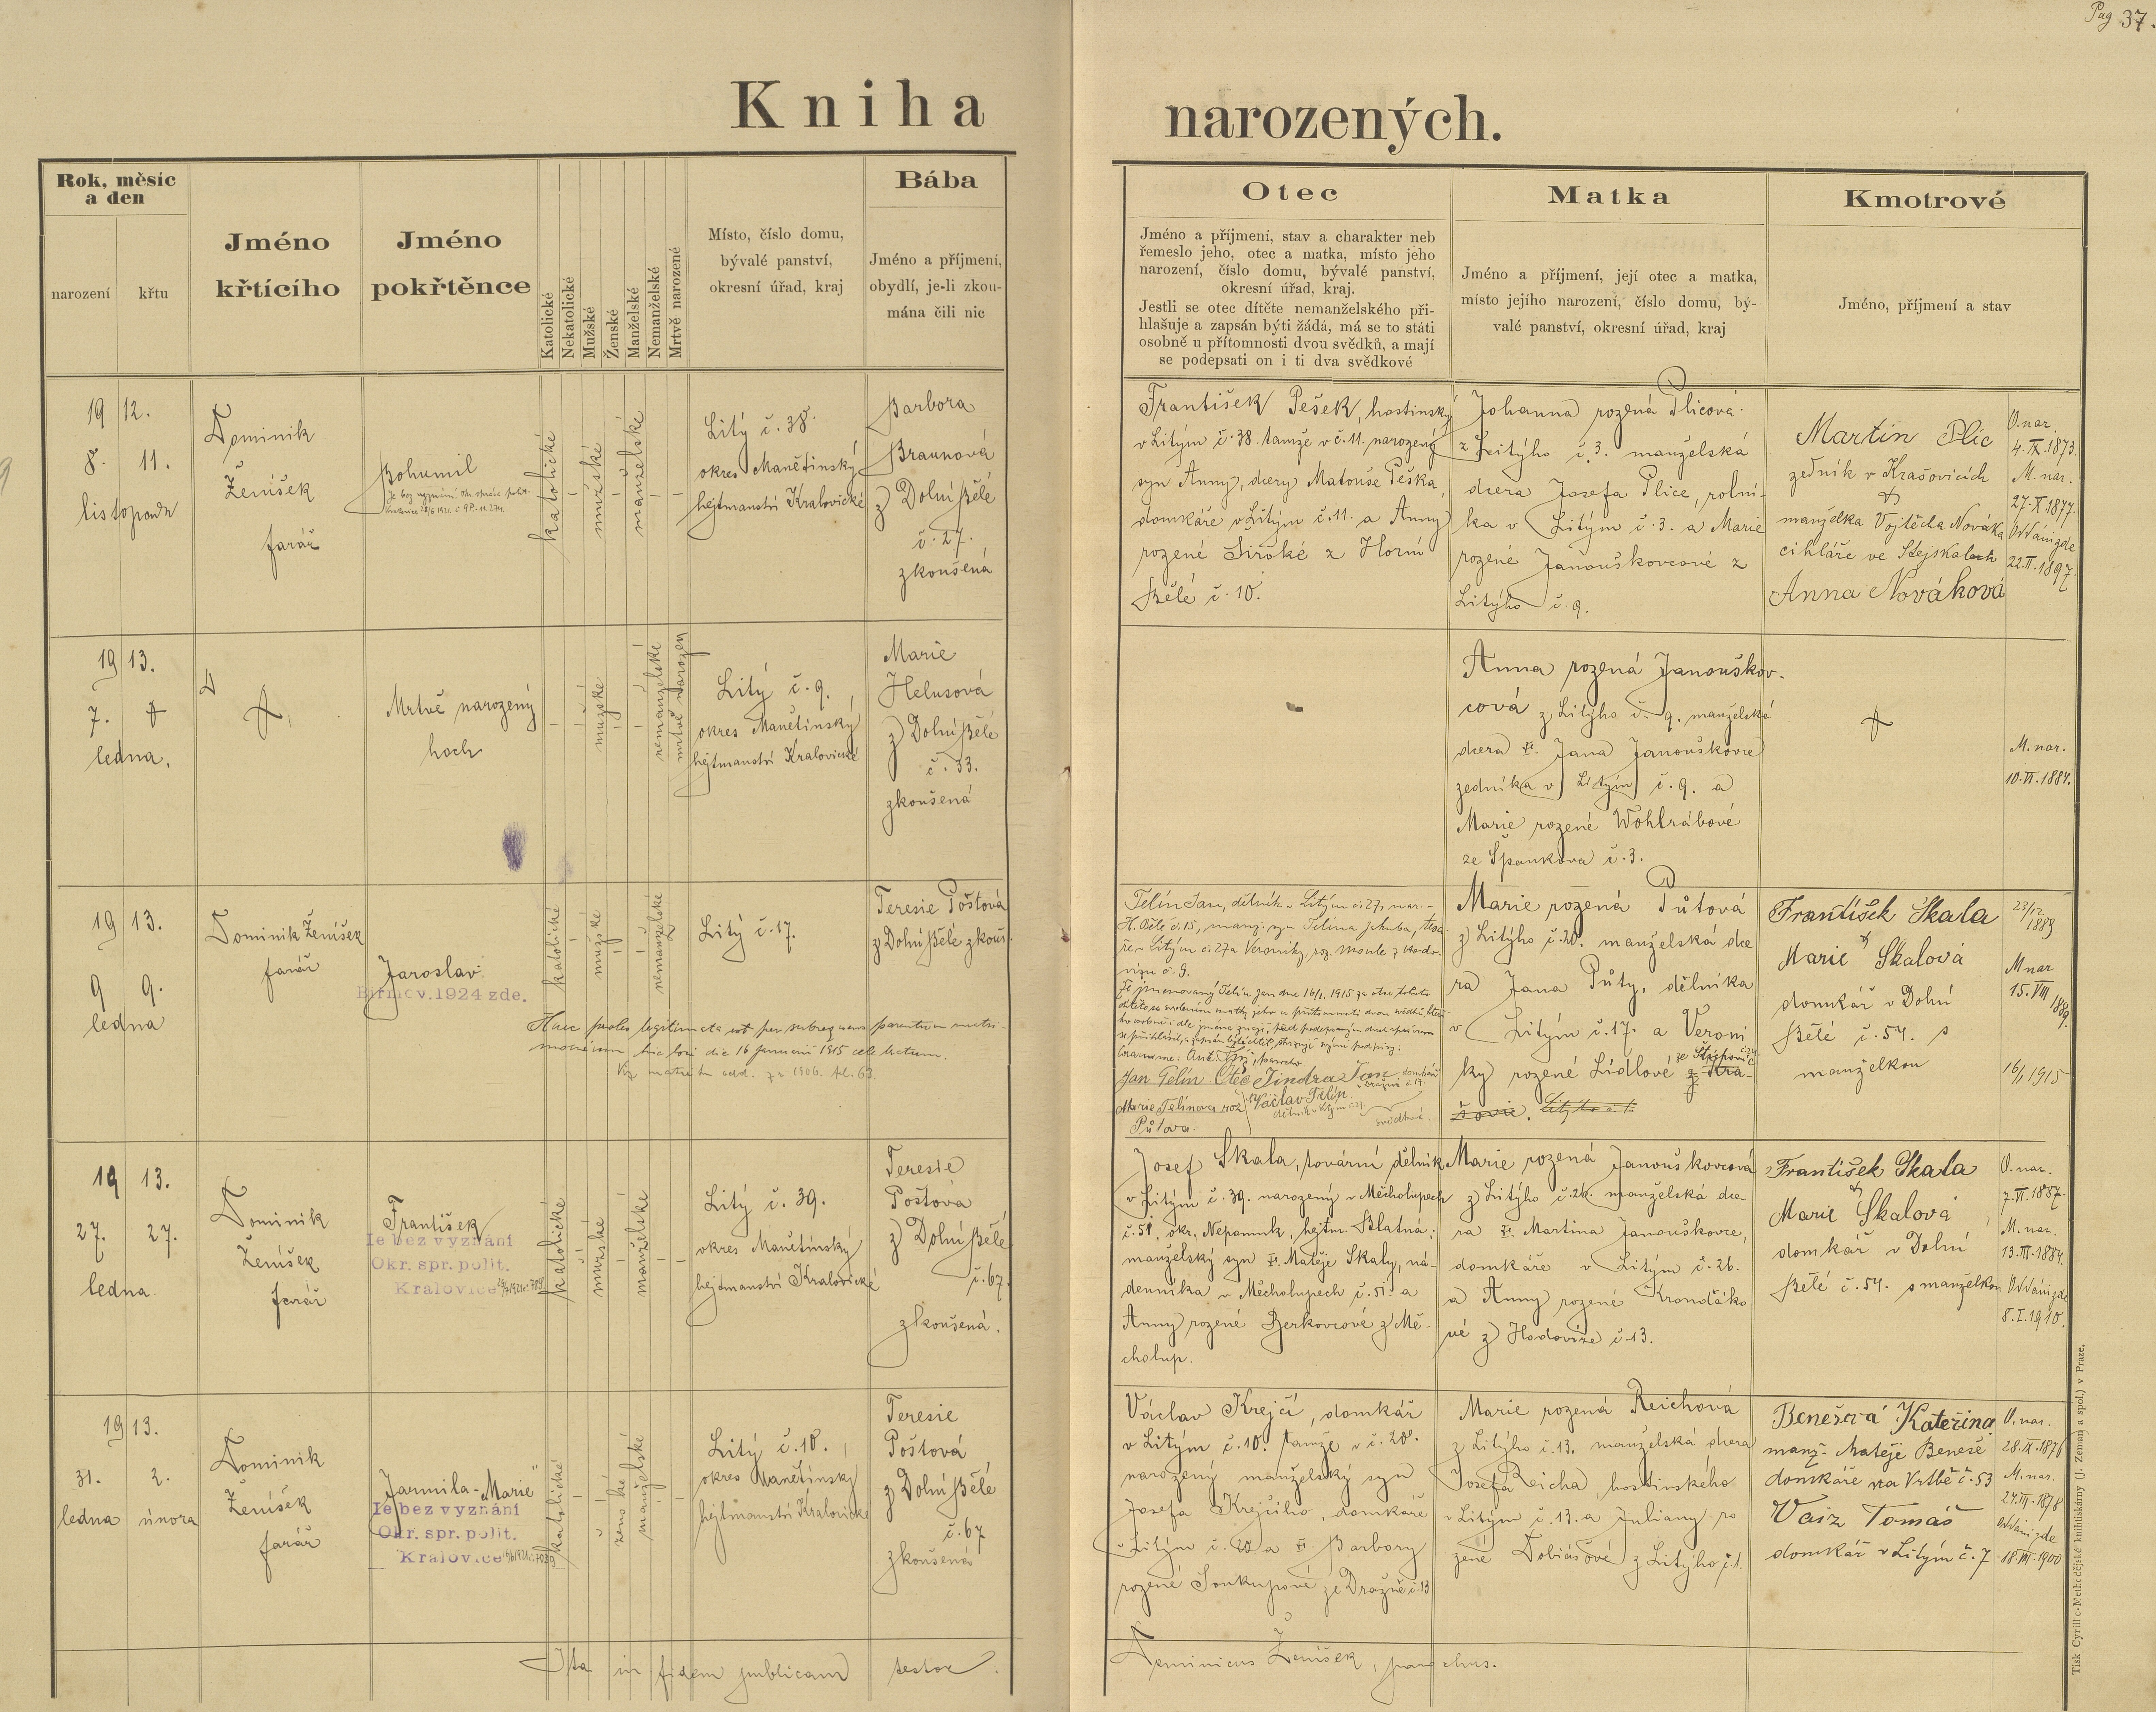 Pag 37.
Kniha narozených.
Rok, měsíc
a den
narození
křtu
Jméno
křtícího
Jméno
pokřtěnce
Katolické
Nekatolické
Mužské
Ženské
Manželské
Nemanželské
Mrtvě narozené
Místo, číslo domu,
bývalé panství,
okresní úřad, kraj
Bába
Jméno a příjmení,
obydlí, je-li zkou-
mána čili nic
Otec
Jméno a příjmení, stav a charakter neb
řemeslo jeho, otec a matka, místo jeho
narození, číslo domu, bývalé panství,
okresní úřad, kraj.
Jestli se otec dítěte nemanželského při-
hlašuje a zapsán býti žádá, má se to státi
osobně u přítomnosti dvou svědků, a mají
se podepsati on i ti dva svědkové
Matka
Jméno a příjmení, její otec a matka,
místo jejího narození, číslo domu, bý-
valé panství, okresní úřad, kraj
Kmotrové
Jméno, příjmení a stav
19 12.
8. 11.
listopadu
Dominik
Ženíšek
farář
Bohumil
Je bez vyznání
katolické
mužské
manželské
Litý č. 38.
okres Manětínský
hejtmanství Kralovické
Barbora
Braunová
z Dolní Bělé
č. 27.
zkoušená
František Pešek, hostinský
v Litým č. 38. tamže v č. 11. narozený
syn Anny, dcery Matouše Peška,
domkáře v Litým č. 11. a Anny
rozené Široké z Horní
Bělé č. 10.
Johanna rozená Plicová
z Litýho č. 3. manželská
dcera Josefa Plice, rolní-
ka v Litým č. 3. a Marie
rozené Janouškovcové z
Litýho č. 9.
Martin Plic
zedník v Krašovicích
&
manželka Vojtěcha Nováka
cihláře ve Stejskalech
Anna Nováková
O. nar.
4. IX. 1873.
M. nar.
27. X. 1877.
Oddáni zde
22. II. 1897.
19 13.
7. †
ledna.
†
Mrtvě narozený
hoch
mužské
nemanželské
mrtvě narozen
Litý č. 9.
okres Manětínský
hejtmanství Kralovické
Marie
Helusová
z Dolní Bělé
č. 33.
zkoušená
Anna rozená Janouškov-
cová z Litýho č. 9. manželská
dcera † Jana Janouškovce
zedníka v Litým č. 9. a
Marie rozené Wohlrábové
ze Špankova č. 3.
†
M. nar.
10. VI. 1884.
19 13.
9 9.
ledna
Dominik Ženíšek
farář
Jaroslav
Biřmov. 1924 zde.
katolické
mužské
nemanželské
Litý č. 17.
Teresie Poštová
z Dolní Bělé zkouš.
Haec proles legitimata est per subsequens parentum matri-
monium hic loci die 16 januarii 1915 celebratum.
Telín Jan, dělník v Litým č. 27, nar. v
H. Bělé č. 15, manž. syn Telína Jakuba,
Jan Telín Otec Jindra Jan
Marie Telínova roz. Václav Telín
Půtova.
svědkové
Marie rozená Půtová
z Litýho č. 20. manželská dce
ra Jana Půty, dělníka
v Litým č. 17. a Veroni
ky rozené Lídlové
František Skala
&
Marie Skalová
domkář v Dolní
Bělé č. 54. s
manželkou
23/12
1889
M nar
15. VIII
1889.
16/1 1915
19 13.
27. 27.
ledna.
Dominik
Ženíšek
farář
František
Je bez vyznání
Okr. spr. polit.
Kralovice
katolické
mužské
manželské
Litý č. 39.
okres Manětínský
hejtmanství Kralovické
Teresie
Poštová
z Dolní Bělé
č. 67.
zkoušená.
Josef Skala, tovární dělník
v Litým č. 39. narozený v Měcholupech
č. 51, okr. Nepomuk, hejtm. Blatná;
manželský syn † Matěje Skaly, ná-
denníka v Měcholupech č. 51. a
Anny rozené Berkovcové z Mě-
cholup.
Marie rozená Janouškovcová
z Litýho č. 26. manželská dce-
ra † Martina Janouškovce,
domkáře v Litým č. 26.
a Anny rozené Kronďáko
vé z Hodovíze č. 13.
František Skala
&
Marie Skalová
domkář v Dolní
Bělé č. 54. s manželkou
O. nar.
7. VI. 1887.
M. nar.
13. III. 1884.
Oddáni zde
8. I. 1910.
19 13.
31. 2.
ledna února
Dominik
Ženíšek
farář
Jarmila-Marie
Je bez vyznání
Okr. spr. polit.
Kralovice
katolické
ženské
manželské
Litý č. 10.
okres Manětínský
hejtmanství Kralovické
Teresie
Poštová
z Dolní Bělé
č. 67
zkoušená
Václav Krejčí, domkář
v Litým č. 10. tamže v č. 20.
narozený manželský syn
Josefa Krejčího, domkáře
v Litým č. 20 a † Barbory
rozené Soukupové ze Dražně č. 13
Marie rozená Reichová
z Litýho č. 13. manželská dcera
Josefa Reicha, hostinského
v Litým č. 13. a Juliany ro
zené Tobiášové z Litýho č. 1.
Benešová Kateřina
manž. Matěje Beneše
domkáře na Vrtbě č. 53
Vaiz Tomáš
domkář v Litým č. 7
O. nar.
28. IX. 1876
M. nar.
24. III. 1878
Oddáni zde
18. III. 1900
Ita in fidem publicam testor
Dominicus Ženíšek, parochus.
Tisk Cyrillo-Methodějské knihtiskárny (J. Zeman a spol.) v Praze.